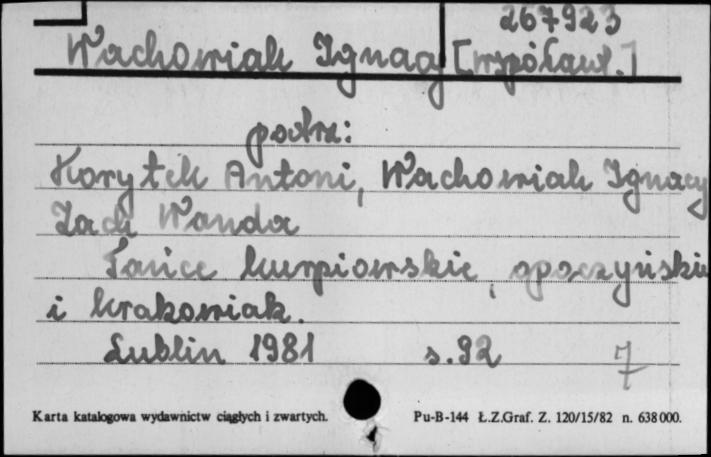 267923
Wachowiak Ignacy [współaut.]
patrz:
Korytek Antoni, Wachowiak Ignacy
Wanda
Tańce kurpiowskie, opoczyńskie
i krakowiak.
Lublin 1981 s. 92 7
Karta katalogowa wydawnictw ciągłych i zwartych. Pu-B-144 Ł.Z.Graf. Z. 120/15/82 n. 638000.